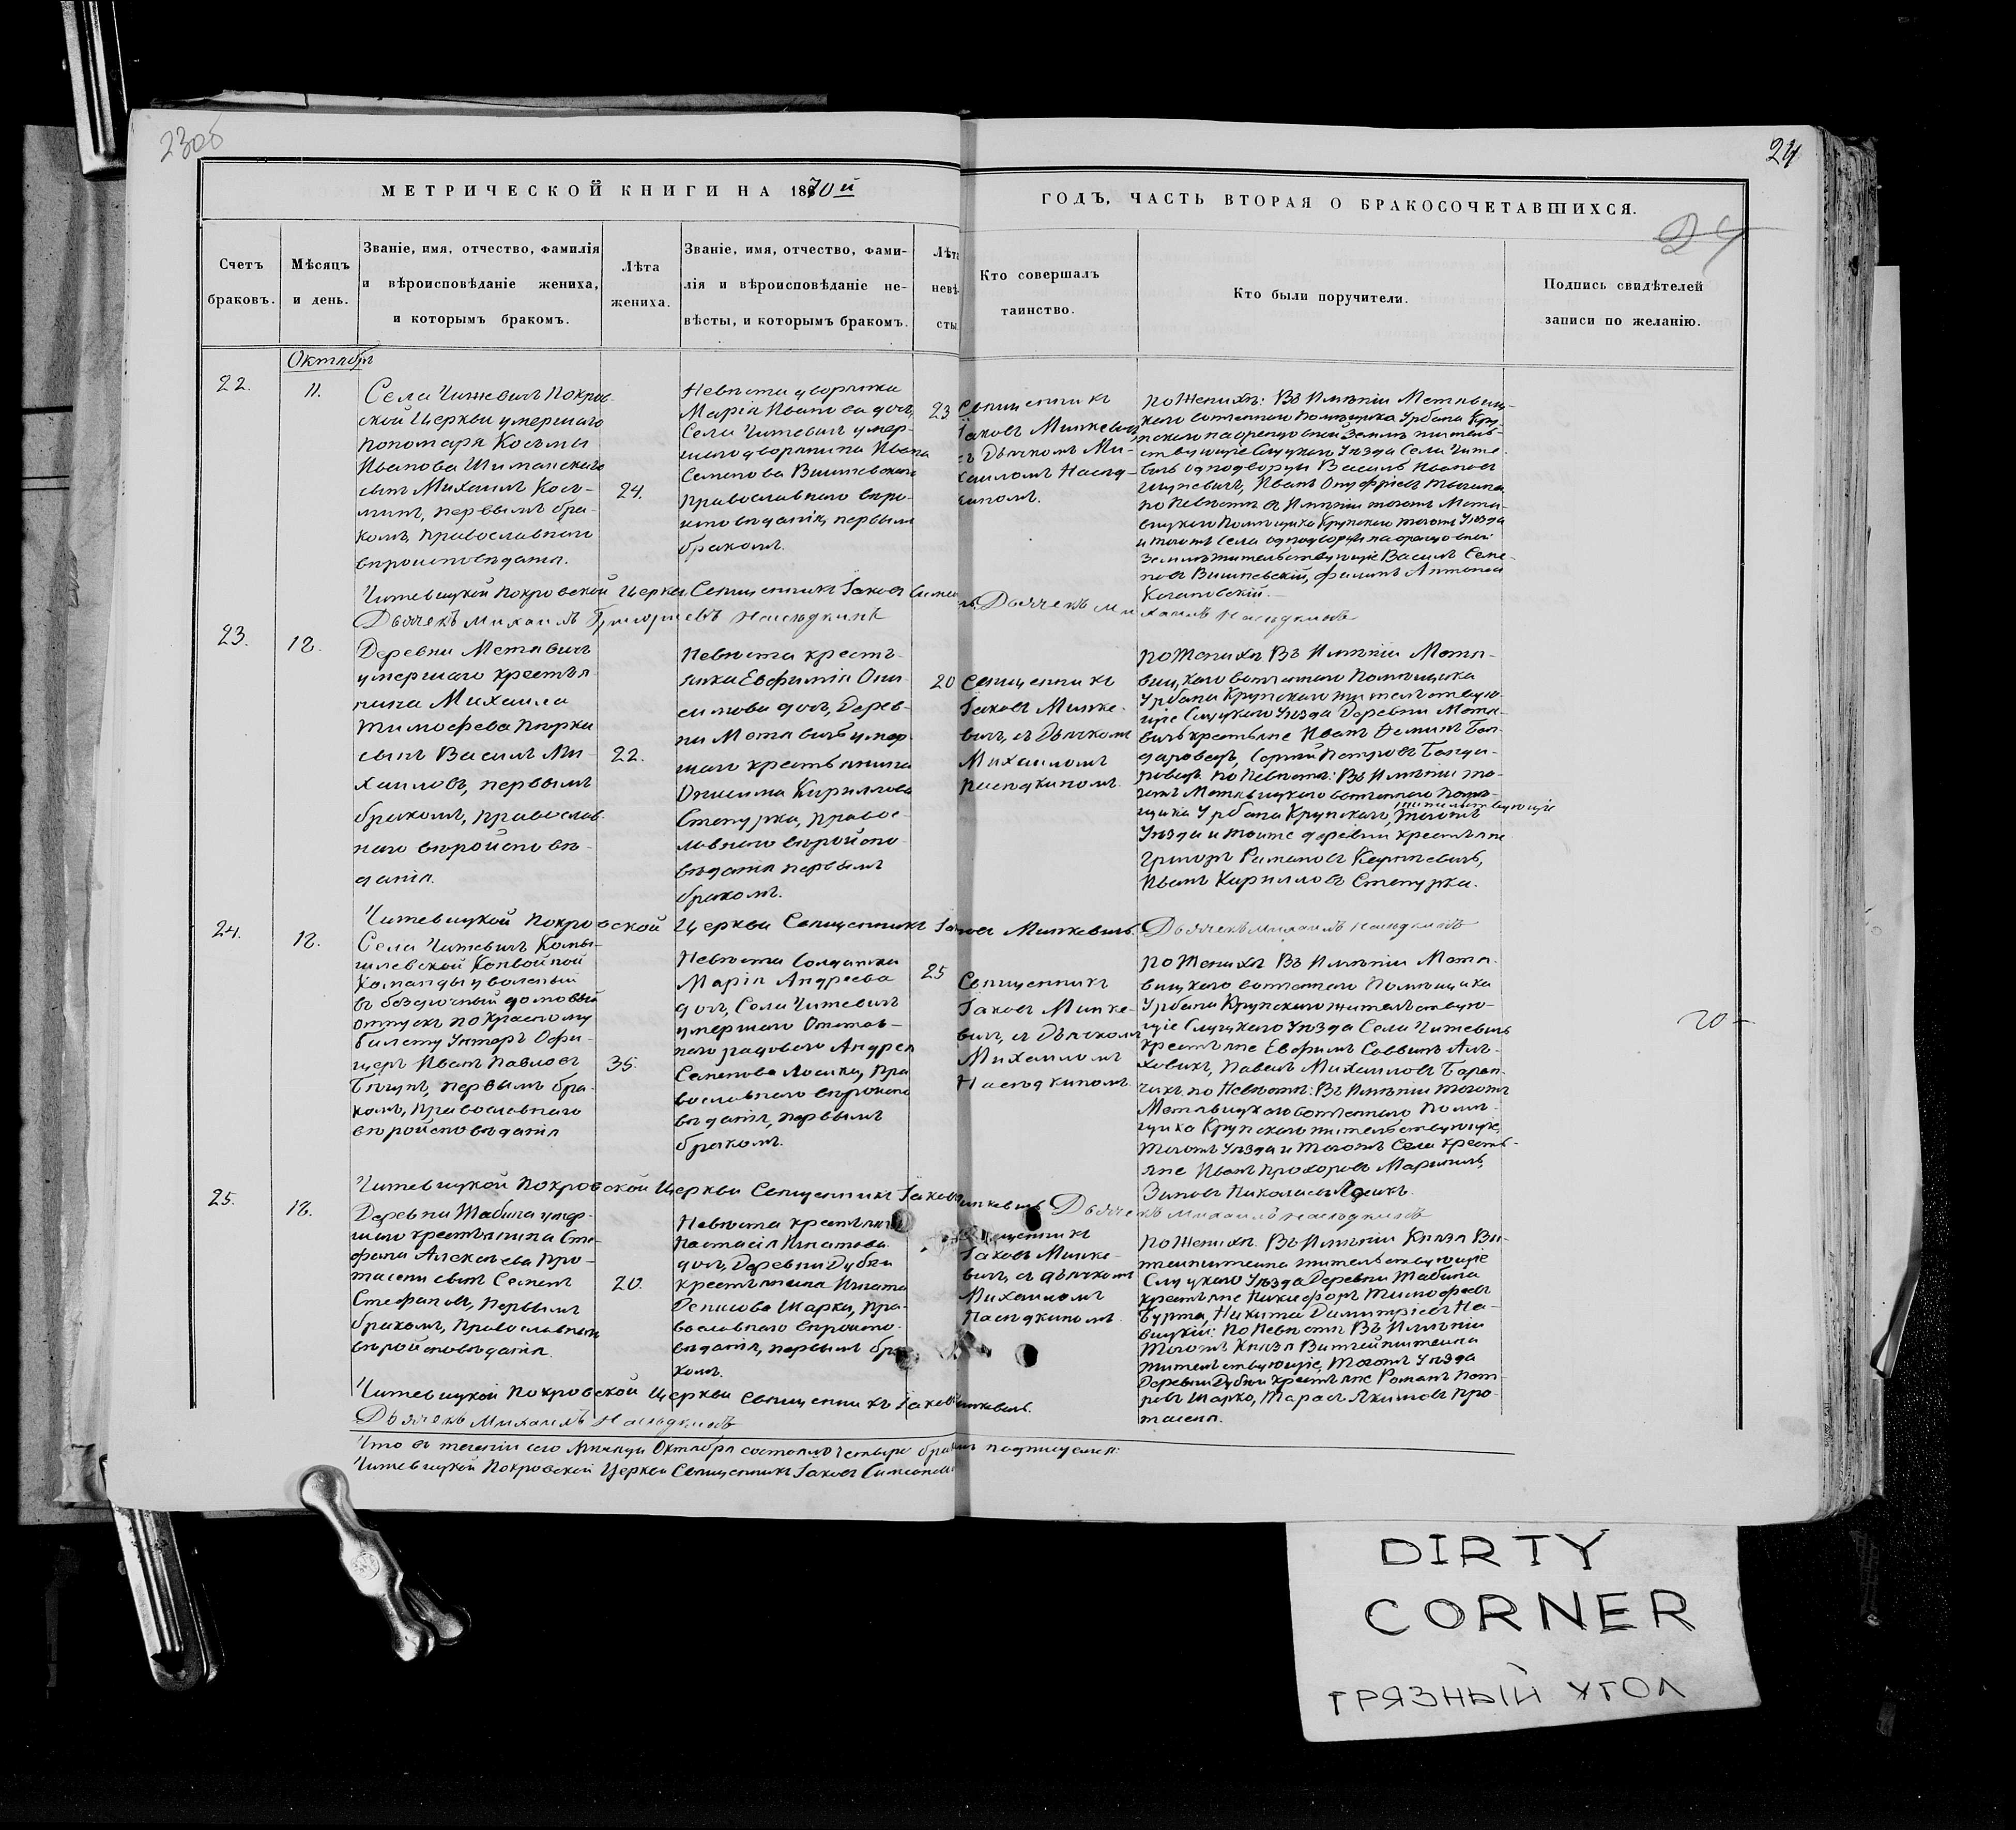 230б
24
МЕТРИЧЕСКОЙ КНИГИ НА 1870й
ГОДЪ, ЧАСТЬ ВТОРАЯ О БРАКОСОЧЕТАВШИХСЯ.
24
Счетъ браковъ.
Мѣсяцъ и день.
Званіе, имя, отчество, фамилія
и вѣроисповѣданіе жениха,
и которымъ бракомъ.
Лѣта
жениха.
Званіе, имя, отчество, фами-
лія и вѣроисповѣданіе не-
вѣсты, и которымъ бракомъ.
Лѣта
невѣ-
сты.
Кто совершалъ
таинство.
Кто были поручители.
Подпись свидѣтелей
записи по желанію.
Октябрь
22.
11.
Села Читевичъ Покров
ской Церкви умершаго
пономаря Косьмы
Иванова Шиманскаго
сынъ Михаилъ Кось-
минъ, первымъ бра-
комъ, православнаго
вѣроисповѣданія.
24.
Невѣста дворянка
Марія Иванова доч,
Села Читевичъ умер-
шаго дворянина Ивана
Семенова Вишневскаго
православнаго вѣро-
исповѣданія, первым
бракомъ.
23
Священникъ
Іаковъ Минкевичъ
съ Дьячкомъ Ми-
хаиломъ Наслѣд-
кинымъ.
по Женихѣ: Въ Имѣніи Метявиц-
каго Помѣщика Урбана Кру-
пскаго на орендовной Землѣ житель-
ствующіе Слуцкаго Уѣзда Села Чите-
вичъ однодворцы Василь Ивановъ
Иванъ Онуфріевъ
по Невѣстѣ въ Имѣніи тогожъ Метя-
вицкаго Помѣщика Крупскаго тогожъ Уѣзда
и тогожъ Села однодворцы на орендовной
Землѣ жительствующіе Василь Семе-
новъ Вишневскій, Филипъ Антоновъ
Качановскій.
Читевицкой Покровской Церкви Священникъ Іаковъ Дьячекъ Михаилъ Наслѣдкинъ
Дьячекъ Михаилъ Григорьевъ Наслѣдкинъ
23.
18.
Деревни Метявичъ
умершаго крестья
нина Михаила
Тимофеева Пырка
сынъ Василь Ми-
хаиловъ, первымъ
бракомъ, православ
наго вѣройсповѣ-
данія.
22.
Невѣста кресть-
янка Евфимія Они
симова доч, Дерев-
ни Метявичъ умер
шаго крестьянина
Онисима Кириллова
Степурка, правос-
лавнаго вѣройспо-
вѣданія первымъ
бракомъ.
20
Священникъ
Іаковъ Минке-
вичъ, съ Дьячкомъ
Михаиломъ
Наслѣдкинымъ
по Женихѣ Въ Имѣніи Метя-
вицкаго Помѣщика
Урбана Крупскаго жительствую
щіе Слуцкаго Уѣзда Деревни Метя-
вичъ крестьяне Иванъ Деминъ Бон-
даровецъ, Сергій Петровъ Бонда-
ровецъ. по Невѣстѣ: Въ Имѣніи то-
гожъ Метявицкаго Помѣ-
щика Урбана Крупскаго, жительствующіе тогожъ
Уѣзда и тоижъ деревни крестьяне
Григорь Романовъ
Иванъ Кирилловъ Степурка.
Читевицкой Покровской Церкви Священникъ Іаковъ Минкевичъ. Дьячекъ Михаилъ Наслѣдкинъ
24.
18.
Села Читевичъ Камы-
шлевской Конвойной
Команды уволеный
въ безсрочный домовый
отпускъ по Красному
билету Унтеръ Офи-
церъ Иванъ Павловъ
первымъ бра-
комъ, православнаго
вѣройсповѣданія
35.
Невѣста Солдатка
Марія Андреева
доч, Села Читевичъ
умершаго Отстав-
наго рядоваго Андрея
Семенова Лосика, пра
вославнаго вѣроиспо
вѣданія, первымъ
бракомъ.
25
Священникъ
Іаковъ Минке-
вичъ, съ Дьячкомъ
Михаиломъ
Наслѣдкинымъ.
по Женихѣ Въ Имѣніи Метя
вицкаго Помѣщика
Урбана Крупскаго жительствую-
щіе Слуцкаго Уѣзда Села Читевичъ
крестьяне Евфимъ Саввинъ Аль-
ховикъ, Павелъ Михаиловъ Баран-
чикъ. по Невѣстѣ: Въ Имѣніи тогожъ
Метявицкаго Помѣ-
щика Крупскаго жительствующіе,
тогожъ Уѣзда и тогожъ Села кресть-
яне Иванъ Прохоровъ
Николаевъ Лосикъ.
20 –
Читевицкой Покровской Церкви Священникъ Іаковъ Минкевичъ Дьячекъ Михаилъ Наслѣдкинъ
25.
18.
Деревни Жабина умер-
шаго крестьянина Сте-
фана Алексѣева Про-
тасени сынъ Семенъ
Стефановъ, первымъ
бракомъ, православнаго
вѣройсповѣданія.
20.
Невѣста крестьянка
Настасія Игнатова
доч, Деревни Дубеи
крестьянина Игната
Денисова Шарки, пра-
вославнаго вѣроиспо-
вѣданія, первымъ бра
комъ.
Священникъ
Іаковъ Минке-
вичъ, съ дьячкомъ
Михаиломъ
Наслѣдкинымъ
по Женихѣ. Въ Имѣніи Князя Ви-
тгенштеина жительствующіе
Слуцкаго Уѣзда Деревни Жабина
крестьяне Никифоръ Тимофеевъ
Бурта, Никита Димитріевъ
по Невѣстѣ Въ Имѣніи
тогожъ Князя Витгенштеина
жительствующіе, тогожъ Уѣзда
Деревни Дубеи крестьяне Романъ Пет-
ровъ Шарко, Тарасъ Якимовъ Про-
тасеня.
Читевицкой Покровской Церкви Священникъ Іаковъ Минкевичъ.
Дьячекъ Михаилъ Наслѣдкинъ
Что въ теченіи сего Мѣсяца Октября состоялось четыре брака подписуемся:
Читевицкой Покровской Церкви Священникъ Іаковъ
DIRTY
CORNER
ГРЯЗНЫЙ УГОЛ